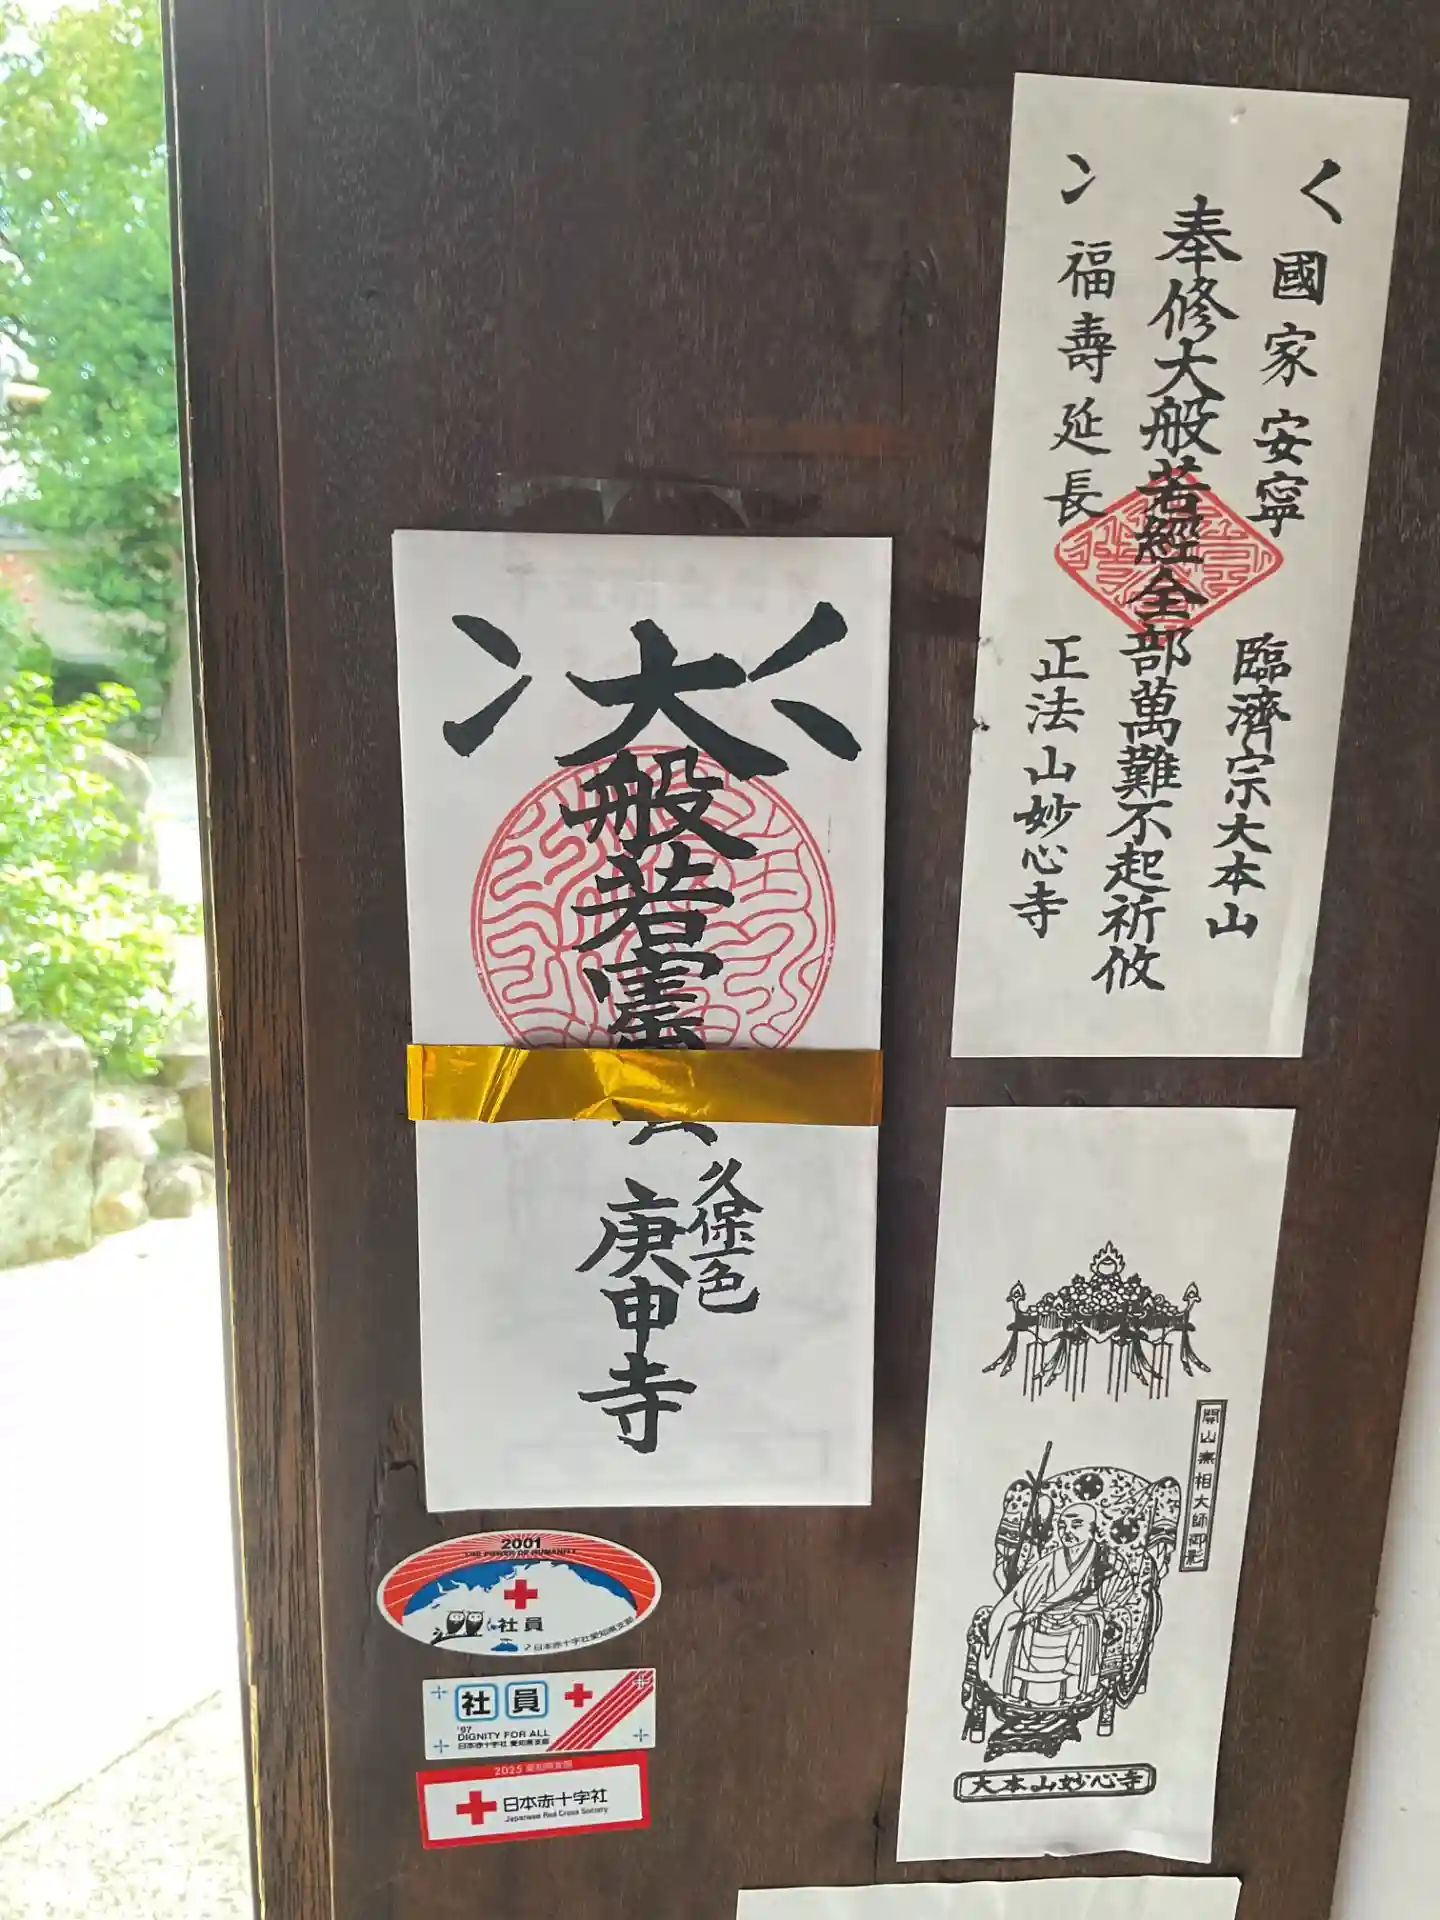 國家安寧
奉修大般若經全部萬難不起祈攸
福壽延長
臨濟宗大本山
正法山妙心寺
大般若
久保一色
庚申寺
開山無相大師御影
大本山妙心寺
2001
THE POWER OF HUMANITY
社員
日本赤十字社愛知県支部
社員
'97
DIGNITY FOR ALL
日本赤十字社 愛知県支部
2025 愛知県支部
日本赤十字社
Japanese Red Cross Society